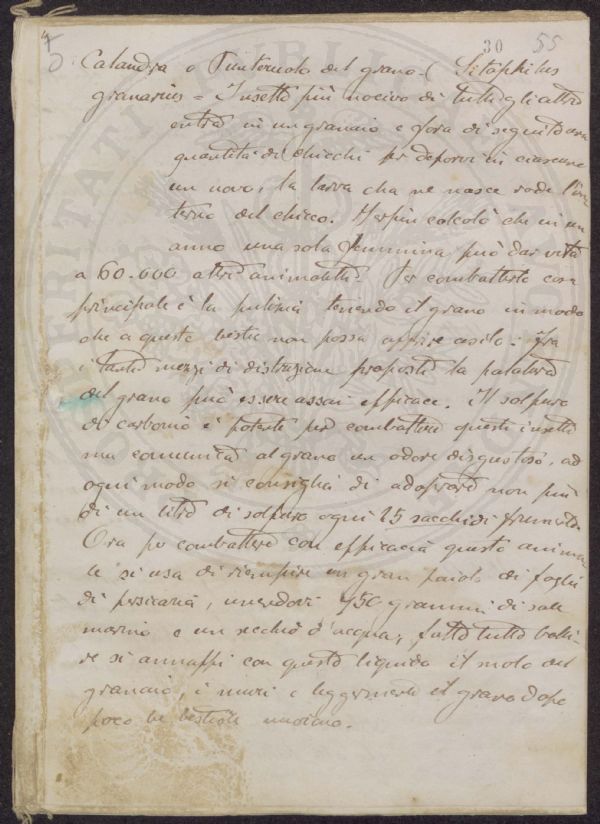 5
30 55
Calandra o Punteruolo del grano = ( Sitophilus
granarius = Insetto più nocivo di tutti gli altri
entra in un granaio e fora di seguito una
quantità di chicchi per deporvi in ciascuno
un uovo, la larva che ne nasce rode l'in
terno del chicco. calcolò che in un
anno una sola femmina può dar vita
a 60.000 altri animaletti. Per combatterli cosa
principale è la pulizia tenendo il grano in modo
che a queste bestie non possa offrire asilo = Fra
i tanti mezzi di distruzione proposti la palatura
del grano può essere assai efficace. Il solfuro
di carbonio è potente per combattere questi insetti
ma comunica al grano un odore disgustoso, ad
ogni modo si consiglia di adoprarne non più
di un litro di solfuro ogni 15 sacchi di frumento
Ora per combattere con efficacia questo anima
le si usa di riempire un gran paiolo di foglie
di persicaria, unendovi 450 grammi di sale
marino e un secchio d'acqua, fatto tutto bolli
re si annaffi con questo liquido il suolo del
granaio, i muri e leggermente il grano dopo
poco le bestiole muoiono.